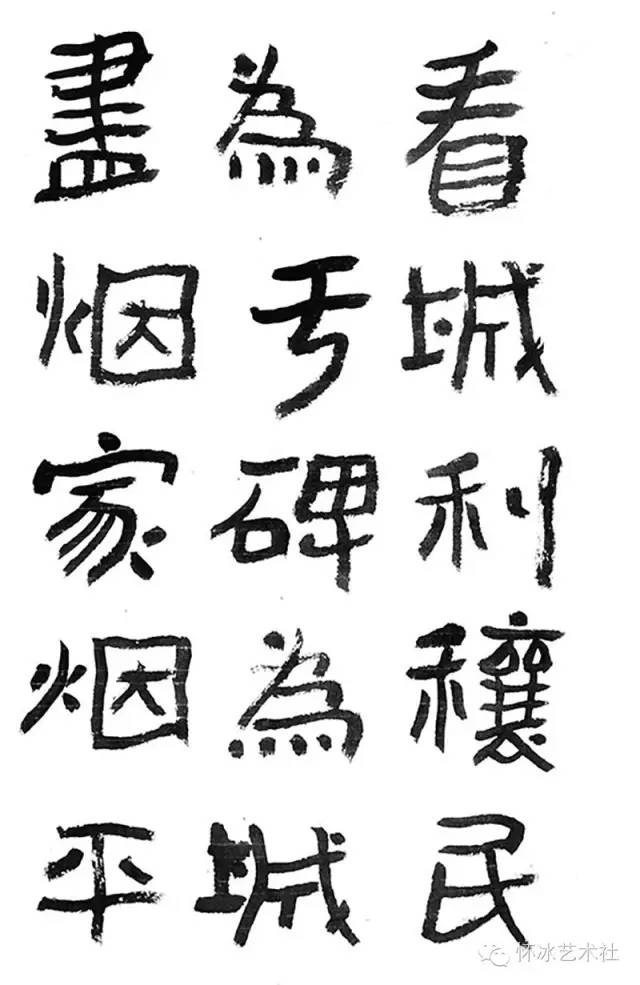 看城利穰民
為于碑為城
盡烟家烟平
怀冰艺术社